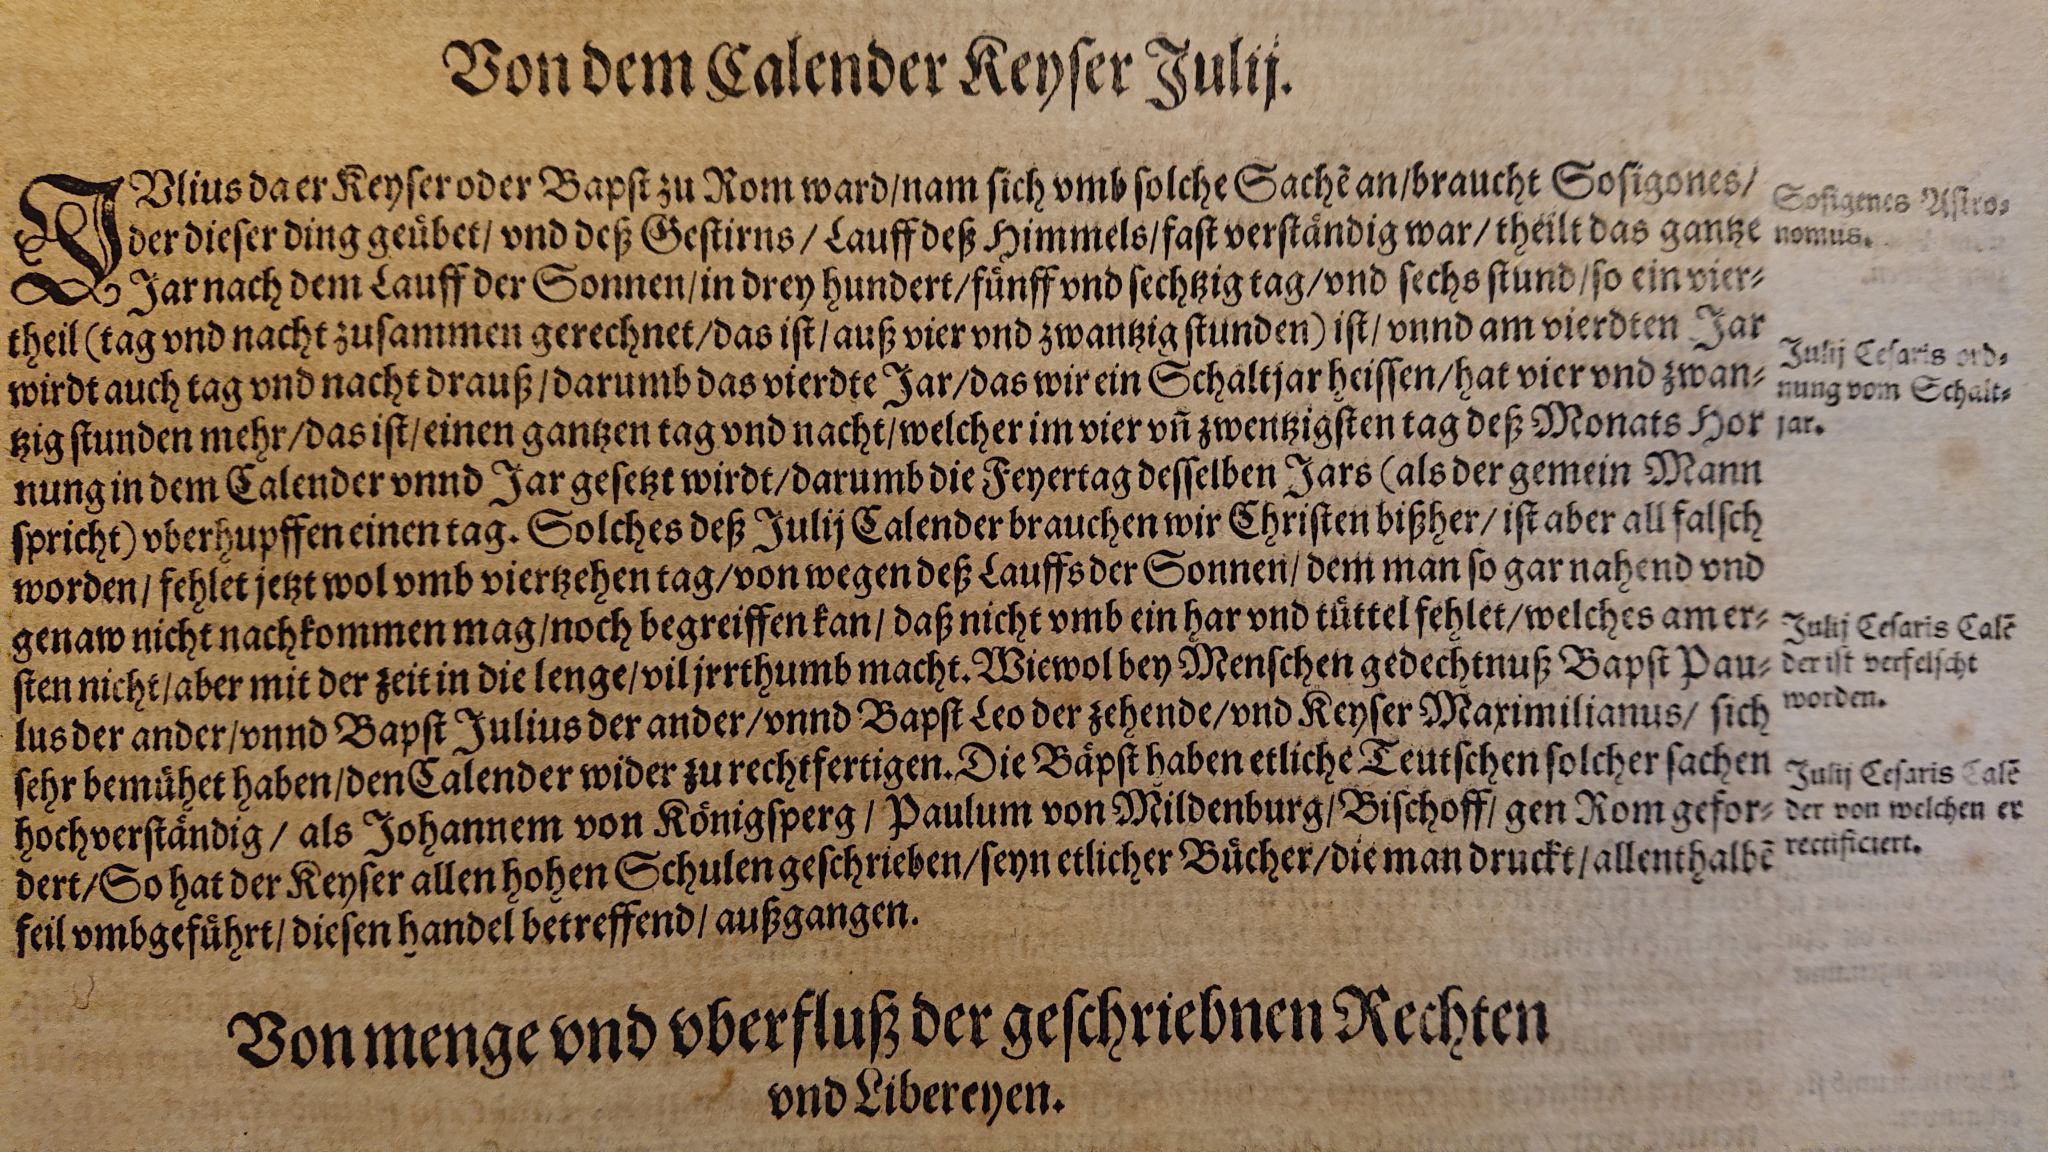 Von dem Calender Keyſer Julij.
JVlius da er Keyſer oder Bapſt zu Rom ward/nam ſich vmb ſolche Sachẽ an/braucht Soſigones/
der dieſer ding geübet/ vnd deß Geſtirns/ Lauff deß Himmels/faſt verſtändig war/ theilt das gantze
Jar nach dem Lauff der Sonnen/in drey hundert/fünff vnd ſechtzig tag/vnd ſechs ſtund/ſo ein vier⸗
theil (tag vnd nacht zuſammen gerechnet/das iſt/auß vier vnd zwantzig ſtunden) iſt/ vnnd am vierdten Jar
wirdt auch tag vnd nacht drauß/darumb das vierdte Jar/das wir ein Schaltjar heiſſen/hat vier vnd zwan⸗
tzig ſtunden mehr/das iſt/einen gantzen tag vnd nacht/welcher im vier vñ zwentzigſten tag deß Monats Hor
nung in dem Calender vnnd Jar geſetzt wirdt/darumb die Feyertag deſſelben Jars (als der gemein Mann
ſpricht) vberhupffen einen tag. Solches deß Julij Calender brauchen wir Chriſten bißher/ iſt aber all falſch
worden/ fehlet jetzt wol vmb viertzehen tag/von wegen deß Lauffs der Sonnen/ dem man ſo gar nahend vnd
genaw nicht nachkommen mag/noch begreiffen kan/ daß nicht vmb ein har vnd tüttel fehlet/welches am er⸗
ſten nicht/aber mit der zeit in die lenge/vil jrrthumb macht. Wiewol bey Menſchen gedechtnuß Bapſt Pau⸗
lus der ander/vnnd Bapſt Julius der ander/vnnd Bapſt Leo der zehende/vnd Keyſer Maximilianus/ ſich
ſehr bemühet haben/den Calender wider zu rechtfertigen. Die Bäpſt haben etliche Teutſchen ſolcher ſachen
hochverſtändig/ als Johannem von Königſperg/ Paulum von Mildenburg/Biſchoff/ gen Rom gefor⸗
dert/So hat der Keyſer allen hohen Schulen geſchrieben/ſeyn etlicher Bücher/die man druckt/allenthalbẽ
feil vmbgeführt/ dieſen handel betreffend/ außgangen.
Soſigenes Aſtro⸗
nomus.
Julij Ceſaris ord⸗
nung vom Schalt⸗
jar.
Julij Ceſaris Calẽ
der iſt verfelſcht
worden.
Julij Ceſaris Calẽ
der von welchen er
rectificiert.
Von menge vnd vberfluß der geſchriebnen Rechten
vnd Libereyen.